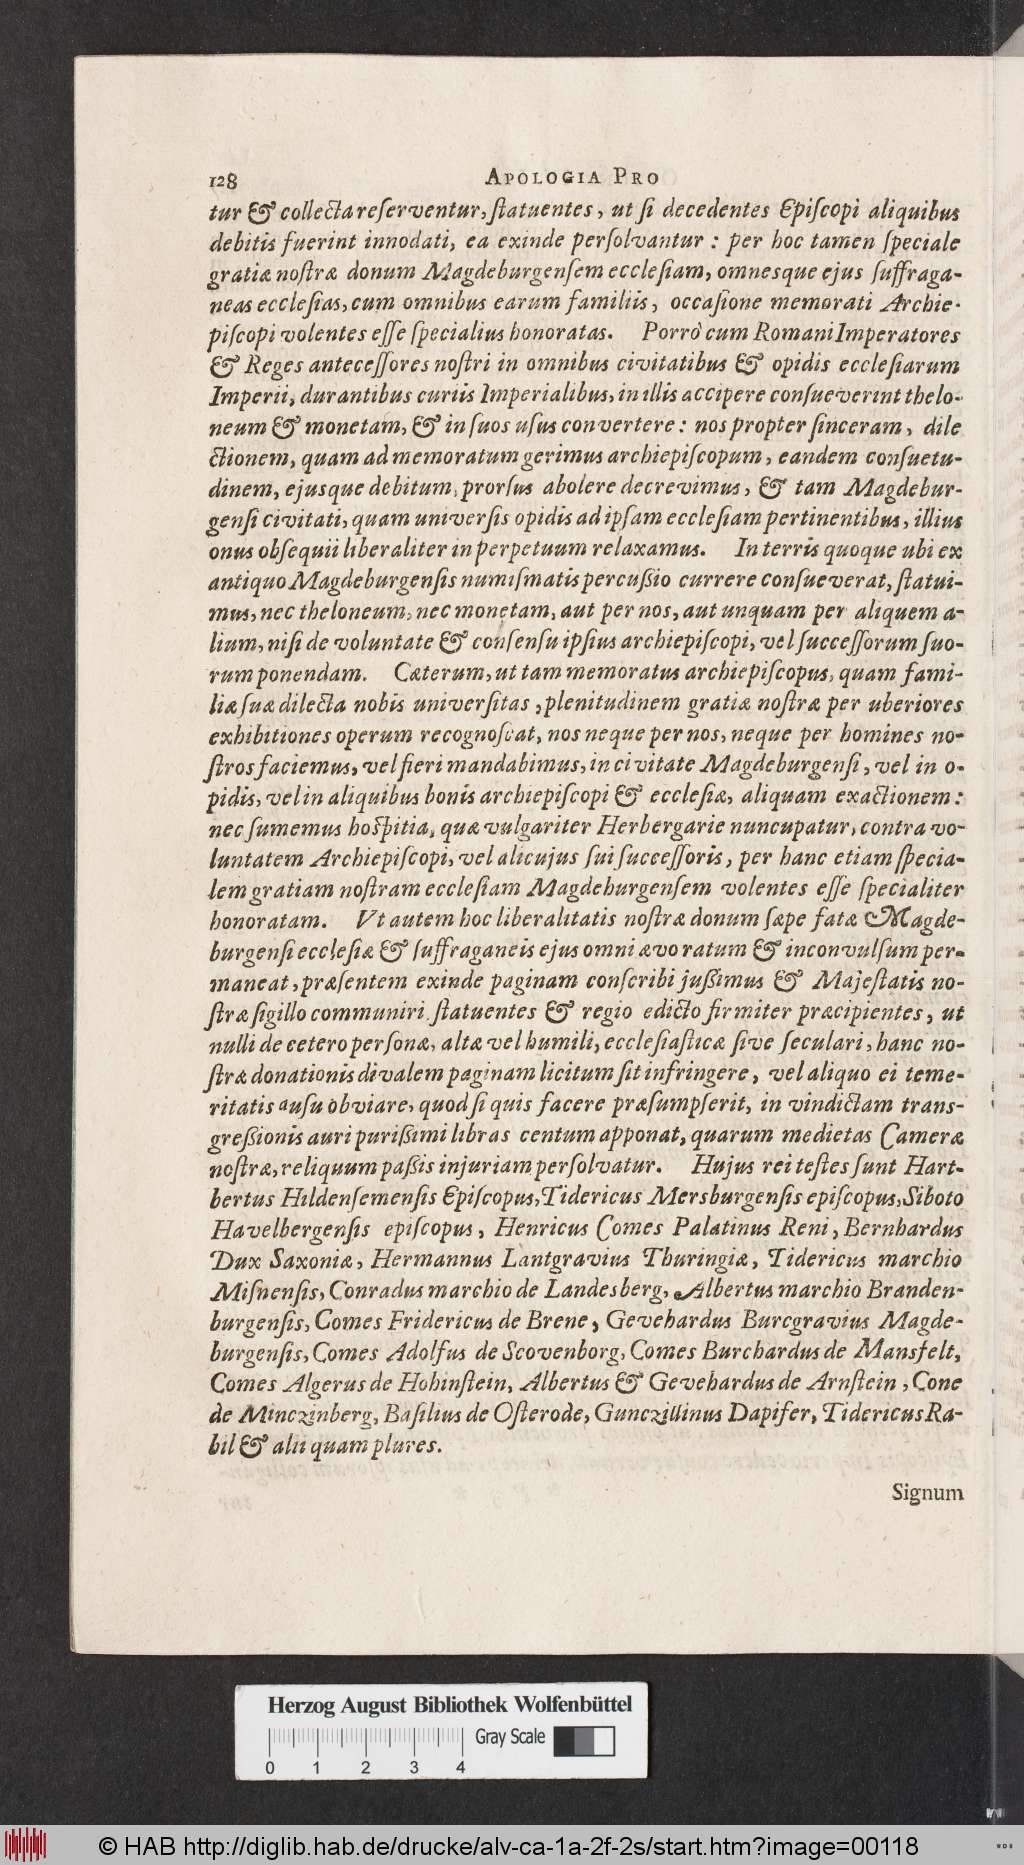 128 APOLOGIA PRO
tur & collecta reſerventur, ſtatuentes, ut ſi decedentes Epiſcopi aliquibus
debitis fuerint innodati, ea exinde perſolvantur : per hoc tamen ſpeciale
gratiæ noſtræ donum Magdeburgenſem eccleſiam, omnesque ejus ſuffraga-
neas eccleſias, cum omnibus earum familiis, occaſione memorati Archie-
piſcopi volentes eſſe ſpecialius honoratas. Porrò cum Romani Imperatores
& Reges anteceſſores noſtri in omnibus civitatibus & opidis eccleſiarum
Imperii, durantibus curiis Imperialibus, in illis accipere conſueverint thelo-
neum & monetam, & in ſuos uſus convertere : nos propter ſinceram, dile
ctionem, quam ad memoratum gerimus archiepiſcopum, eandem conſuetu-
dinem, ejusque debitum, prorſus abolere decrevimus, & tam Magdebur-
genſi civitati, quam univerſis opidis ad ipſam eccleſiam pertinentibus, illius
onus obſequii liberaliter in perpetuum relaxamus. In terris quoque ubi ex
antiquo Magdeburgenſis numiſmatis percuſſio currere conſueverat, ſtatui-
mus, nec theloneum, nec monetam, aut per nos, aut unquam per aliquem a-
lium, niſi de voluntate & conſenſu ipſius archiepiſcopi, vel ſucceſſorum ſuo-
rum ponendam. Cæterum, ut tam memoratus archiepiſcopus, quam fami-
liæ ſuæ dilecta nobis univerſitas, plenitudinem gratiæ noſtræ per uberiores
exhibitiones operum recognoſcat, nos neque per nos, neque per homines no-
ſtros faciemus, vel fieri mandabimus, in civitate Magdeburgenſi, vel in o-
pidis, vel in aliquibus bonis archiepiſcopi & eccleſiæ, aliquam exactionem :
nec ſumemus hoſpitia, quæ vulgariter Herbergarie nuncupatur, contra vo-
luntatem Archiepiſcopi, vel alicujus ſui ſucceſſoris, per hanc etiam ſpecia-
lem gratiam noſtram eccleſiam Magdeburgenſem volentes eſſe ſpecialiter
honoratam. Ut autem hoc liberalitatis noſtræ donum ſæpe fatæ Magde-
burgenſi eccleſiæ & ſuffraganeis ejus omni ævo ratum & inconvulſum per-
maneat, præſentem exinde paginam conſcribi juſſimus & Majeſtatis no-
ſtræ ſigillo communiri. ſtatuentes & regio edicto firmiter præcipientes, ut
nulli de cetero perſonæ, altæ vel humili, eccleſiaſticæ ſive ſeculari, hanc no-
ſtræ donationis divalem paginam licitum ſit infringere, vel aliquo ei teme-
ritatis auſu obviare, quod ſi quis facere præſumpſerit, in vindictam trans-
greſſionis auri puriſſimi libras centum apponat, quarum medietas Cameræ
noſtræ, reliquum paſſis injuriam perſolvatur. Hujus rei teſtes ſunt Hart-
bertus Hildenſemenſis Epiſcopus, Tidericus Mersburgenſis epiſcopus, Siboto
Havelbergenſis epiſcopus, Henricus Comes Palatinus Reni, Bernhardus
Dux Saxoniæ, Hermannus Lantgravius Thuringiæ, Tidericus marchio
Miſnenſis, Conradus marchio de Landesberg, Albertus marchio Branden-
burgenſis, Comes Fridericus de Brene, Gevehardus Burcgravius Magde-
burgenſis, Comes Adolfus de Scovenborg, Comes Burchardus de Mansfelt,
Comes Algerus de Hohinſtein, Albertus & Gevehardus de Arnſtein, Cone
de Minczinberg, Baſilius de Oſterode, Gunczillinus Dapifer, Tidericus Ra-
bil & alii quam plures.
Signum
Herzog August Bibliothek Wolfenbüttel
Gray Scale
0 1 2 3 4
© HAB http://diglib.hab.de/drucke/alv-ca-1a-2f-2s/start.htm?image=00118